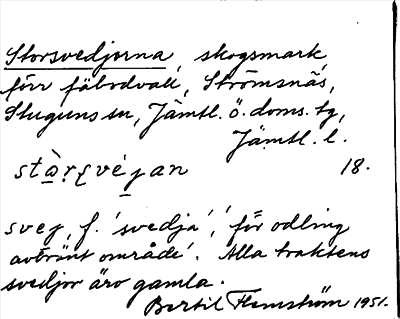 Storsvedjorna, skogsmark,
förr fäbodvall, Strömsnäs,
Stuguns sn, Jämtl. ö. doms. tg,
Jämtl. l.
18.
svej, f. 'svedja', 'för odling
avbränt område'. Alla traktens
svedjor äro gamla.
Bertil Flemström 1951.